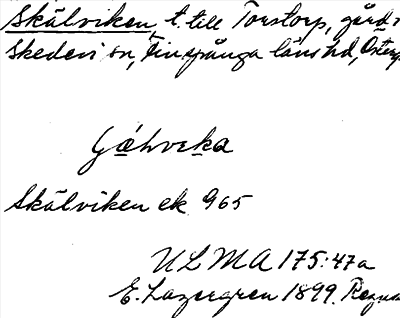 Skälviken, t. till Torstorp, gård i
Skedevi sn, Finspånga läns hd, Österg
Skälviken ek 965
ULMA 175:47a
E. Lazergren 1899.